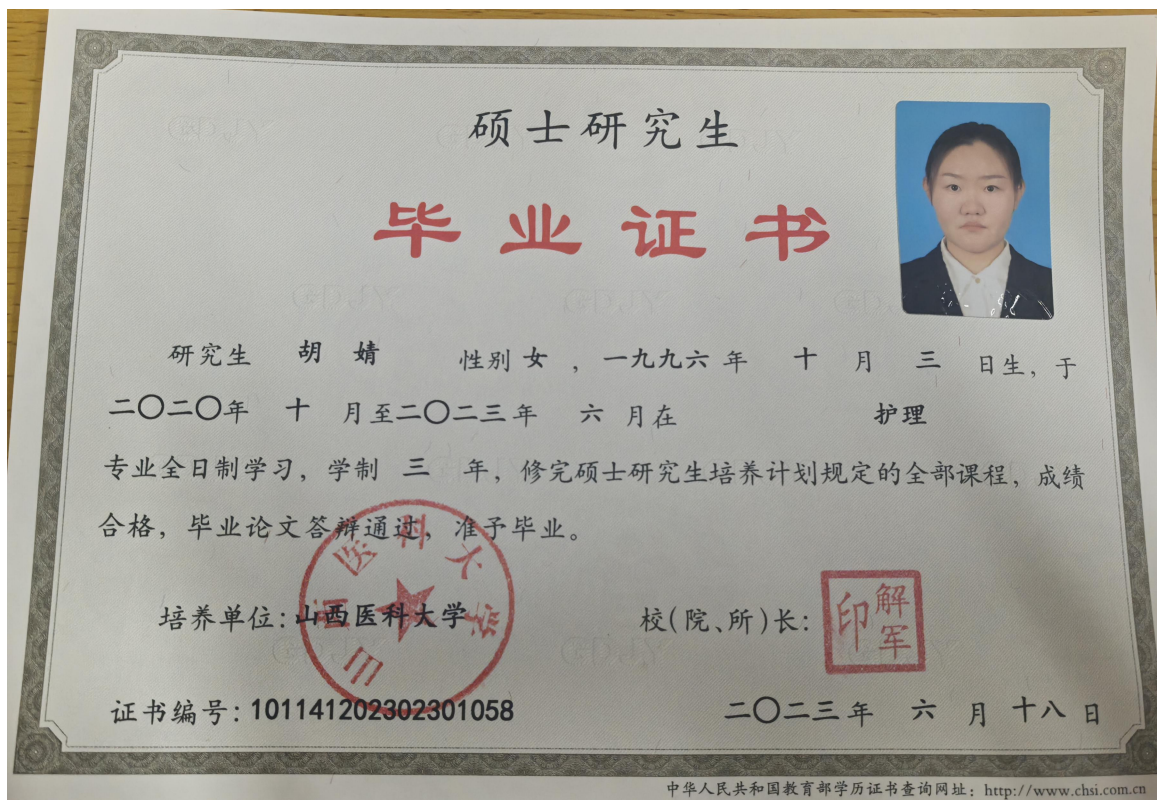 硕士研究生
毕业证书
研究生 胡婧 性别女，一九九六年 十 月 三 日生，于
二〇二〇年 十 月至二〇二三年 六 月在 护理
专业全日制学习，学制 三 年，修完硕士研究生培养计划规定的全部课程，成绩
合格，毕业论文答辩通过，准予毕业。
山西医科大学
培养单位：山西医科大学 校（院、所）长：
解军印
证书编号：101141202302301058 二〇二三年 六 月 十八 日
中华人民共和国教育部学历证书查询网址：http://www.chsi.com.cn